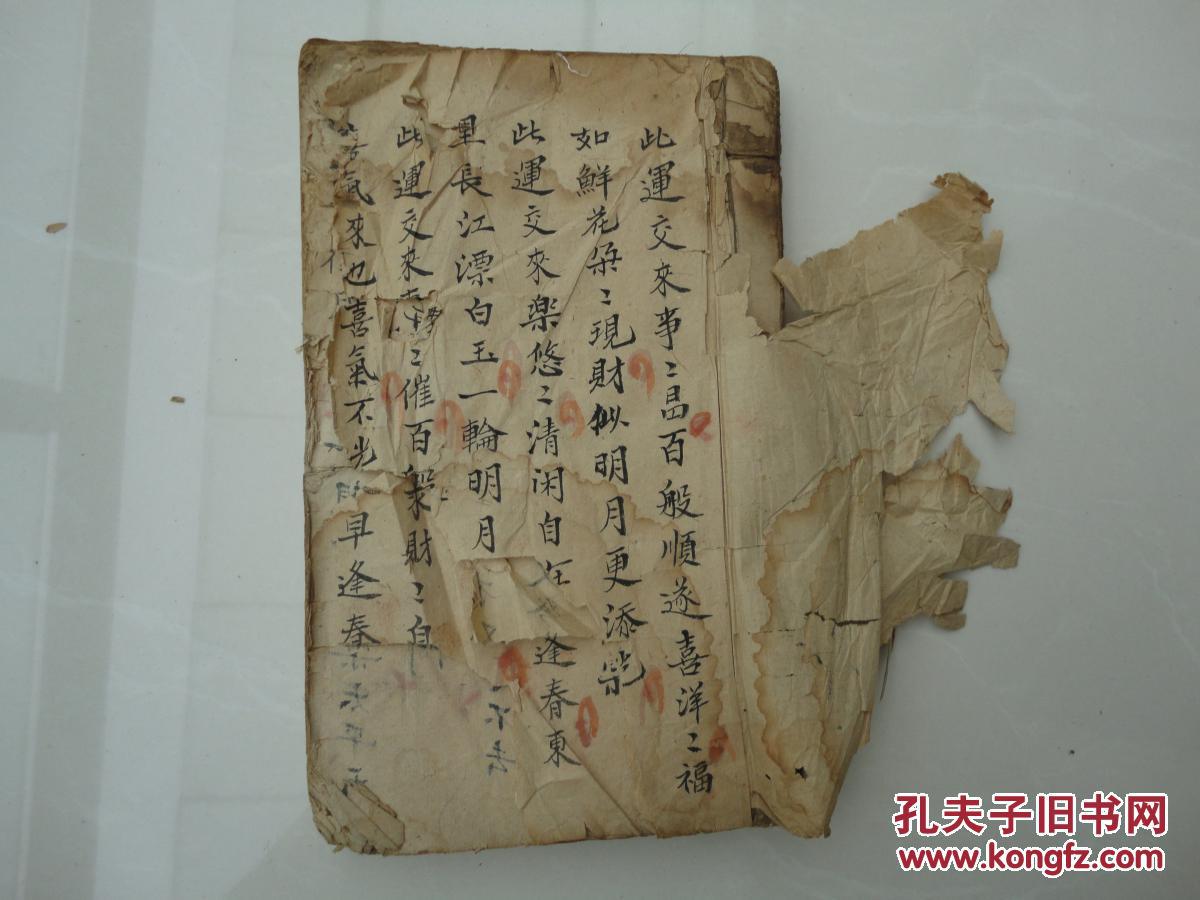 此運交來事〻昌百般順遂喜洋〻福
如鮮花朵〻現財似明月更添
此運交來楽悠〻清闲自在逢春東
里長江漂白玉一輪明月
此運交來〻催百般財〻自
氣來也喜氣不早逢春
孔夫子旧书网
www.kongfz.com